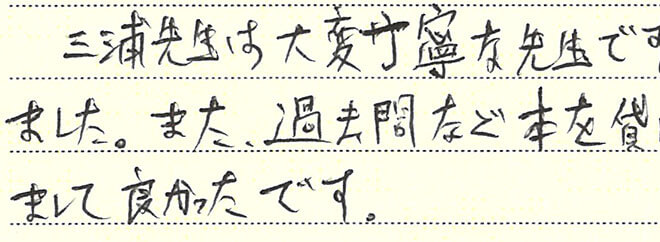 三浦先生は大変丁寧な先生です
ました。また、過去問など本を貸し
まして良かったです。